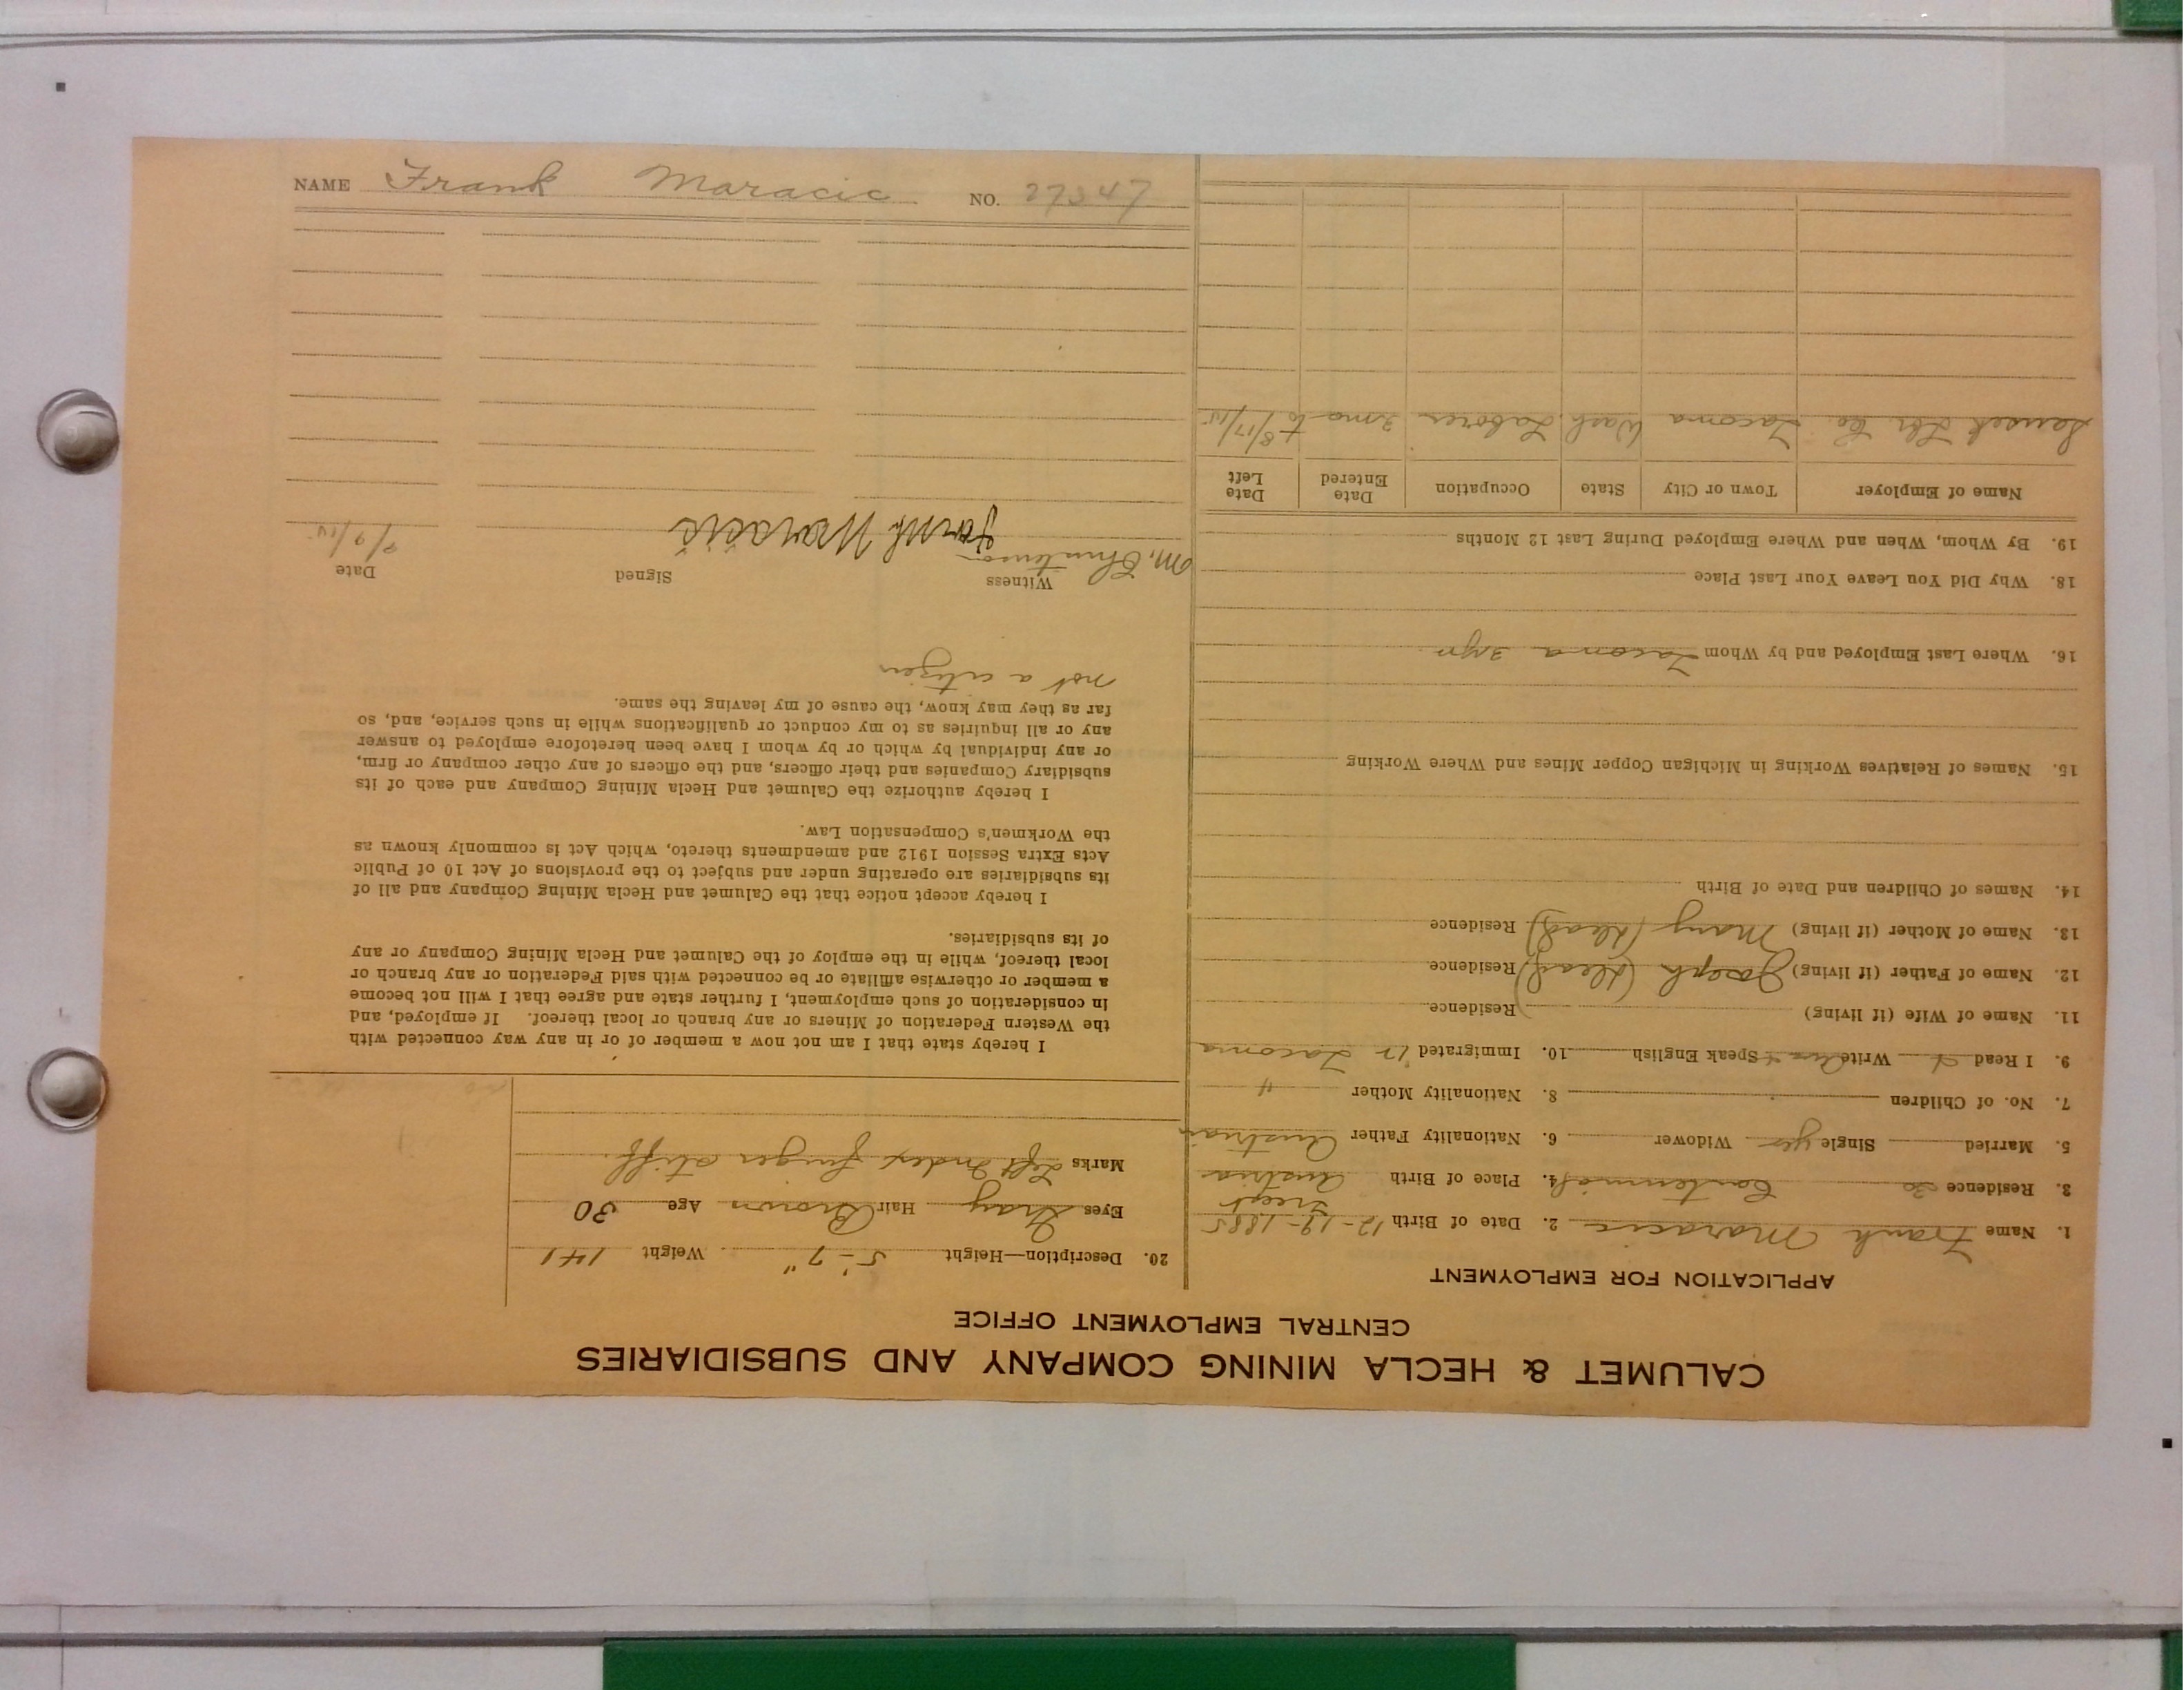 CALUMET & HECLA MINING COMPANY AND SUBSIDIARIES
CENTRAL EMPLOYMENT OFFICE
APPLICATION FOR EMPLOYMENT
1. Name Frank Maracic 2. Date of Birth 12-19-1885
3. Residence 30 Centennial 4. Place of Birth Austria
5. Married Single yes Widower 6. Nationality Father Austrian
7. No. of Children 8. Nationality Mother "
9. I Read Write Speak English 10. Immigrated Tacoma
11. Name of Wife (if living) Residence
12. Name of Father (if living) Joseph (dead) Residence
13. Name of Mother (if living) Mary (dead) Residence
14. Names of Children and Date of Birth
15. Names of Relatives Working in Michigan Copper Mines and Where Working
16. Where Last Employed and by Whom Tacoma
18. Why Did You Leave Your Last Place
19. By Whom, When and Where Employed During Last 12 Months
Name of Employer Town or City State Occupation Date Entered Date Left
Co. Tacoma Wash Laborer 3 mo to 8/17/15
20. Description—Height 5'-7" Weight 141
Eyes Gray Hair Brown Age 30
Marks Left Index finger stiff.
I hereby state that I am not now a member of or in any way connected with
the Western Federation of Miners or any branch or local thereof. If employed, and
in consideration of such employment, I further state and agree that I will not become
a member or otherwise affiliate or be connected with said Federation or any branch or
local thereof, while in the employ of the Calumet and Hecla Mining Company or any
of its subsidiaries.
I hereby accept notice that the Calumet and Hecla Mining Company and all of
its subsidiaries are operating under and subject to the provisions of Act 10 of Public
Acts Extra Session 1912 and amendments thereto, which Act is commonly known as
the Workmen's Compensation Law.
I hereby authorize the Calumet and Hecla Mining Company and each of its
subsidiary Companies and their officers, and the officers of any other company or firm,
or any individual by which or by whom I have been heretofore employed to answer
any or all inquiries as to my conduct or qualifications while in such service, and, so
far as they may know, the cause of my leaving the same.
not a citizen
Witness Signed Date
Maracić 9/9/15
NAME Frank Maracic NO. 27347